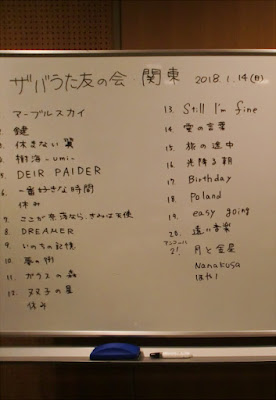 ザバうた友の会・関東 2018.1.14(日)
1. マーブルスカイ
2. 鍵
3. 休まない翼
4. 樹海 -umi-
5. DEIR PAIDER
6. 一番好きな時間
休み
7. ここが奈落なら、きみは天使
8. DREAMER
9. いのちの記憶
10. 夢の術
11. ガラスの森
12. 双子の星
休み
13. Still I'm fine
14. 愛の言葉
15. 旅の途中
16. 光降る朝
17. Birthday
18. Poland
19. easy going
20. 遠い音楽
アンコール
21. 月と金星
Nanakusa
はやし